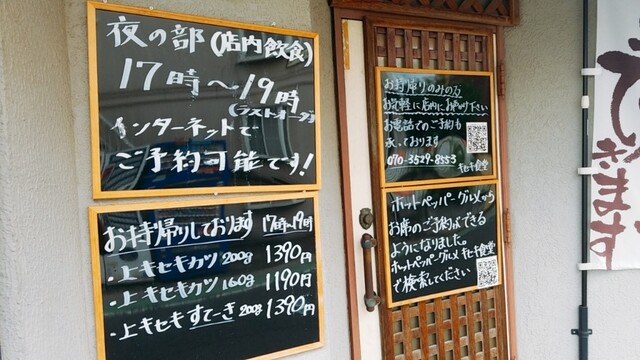 夜の部(店内飲食)
17時〜19時
(ラストオーダー)
インターネットで
ご予約可能です!
お持帰りしております 17時〜19時
・上キセキカツ 200g 1390円
・上キセキカツ 160g 1190円
・上キセキすてーき 200g 1390円
お持帰りのみの方
お気軽に店内にお声かけ下さい
お電話でのご予約も
承っております
090-3529-8553
キセキ食堂
ホットペッパーグルメから
お席のご予約ができる
ようになりました。
ホットペッパーグルメ キセキ食堂
で検索してください
できます